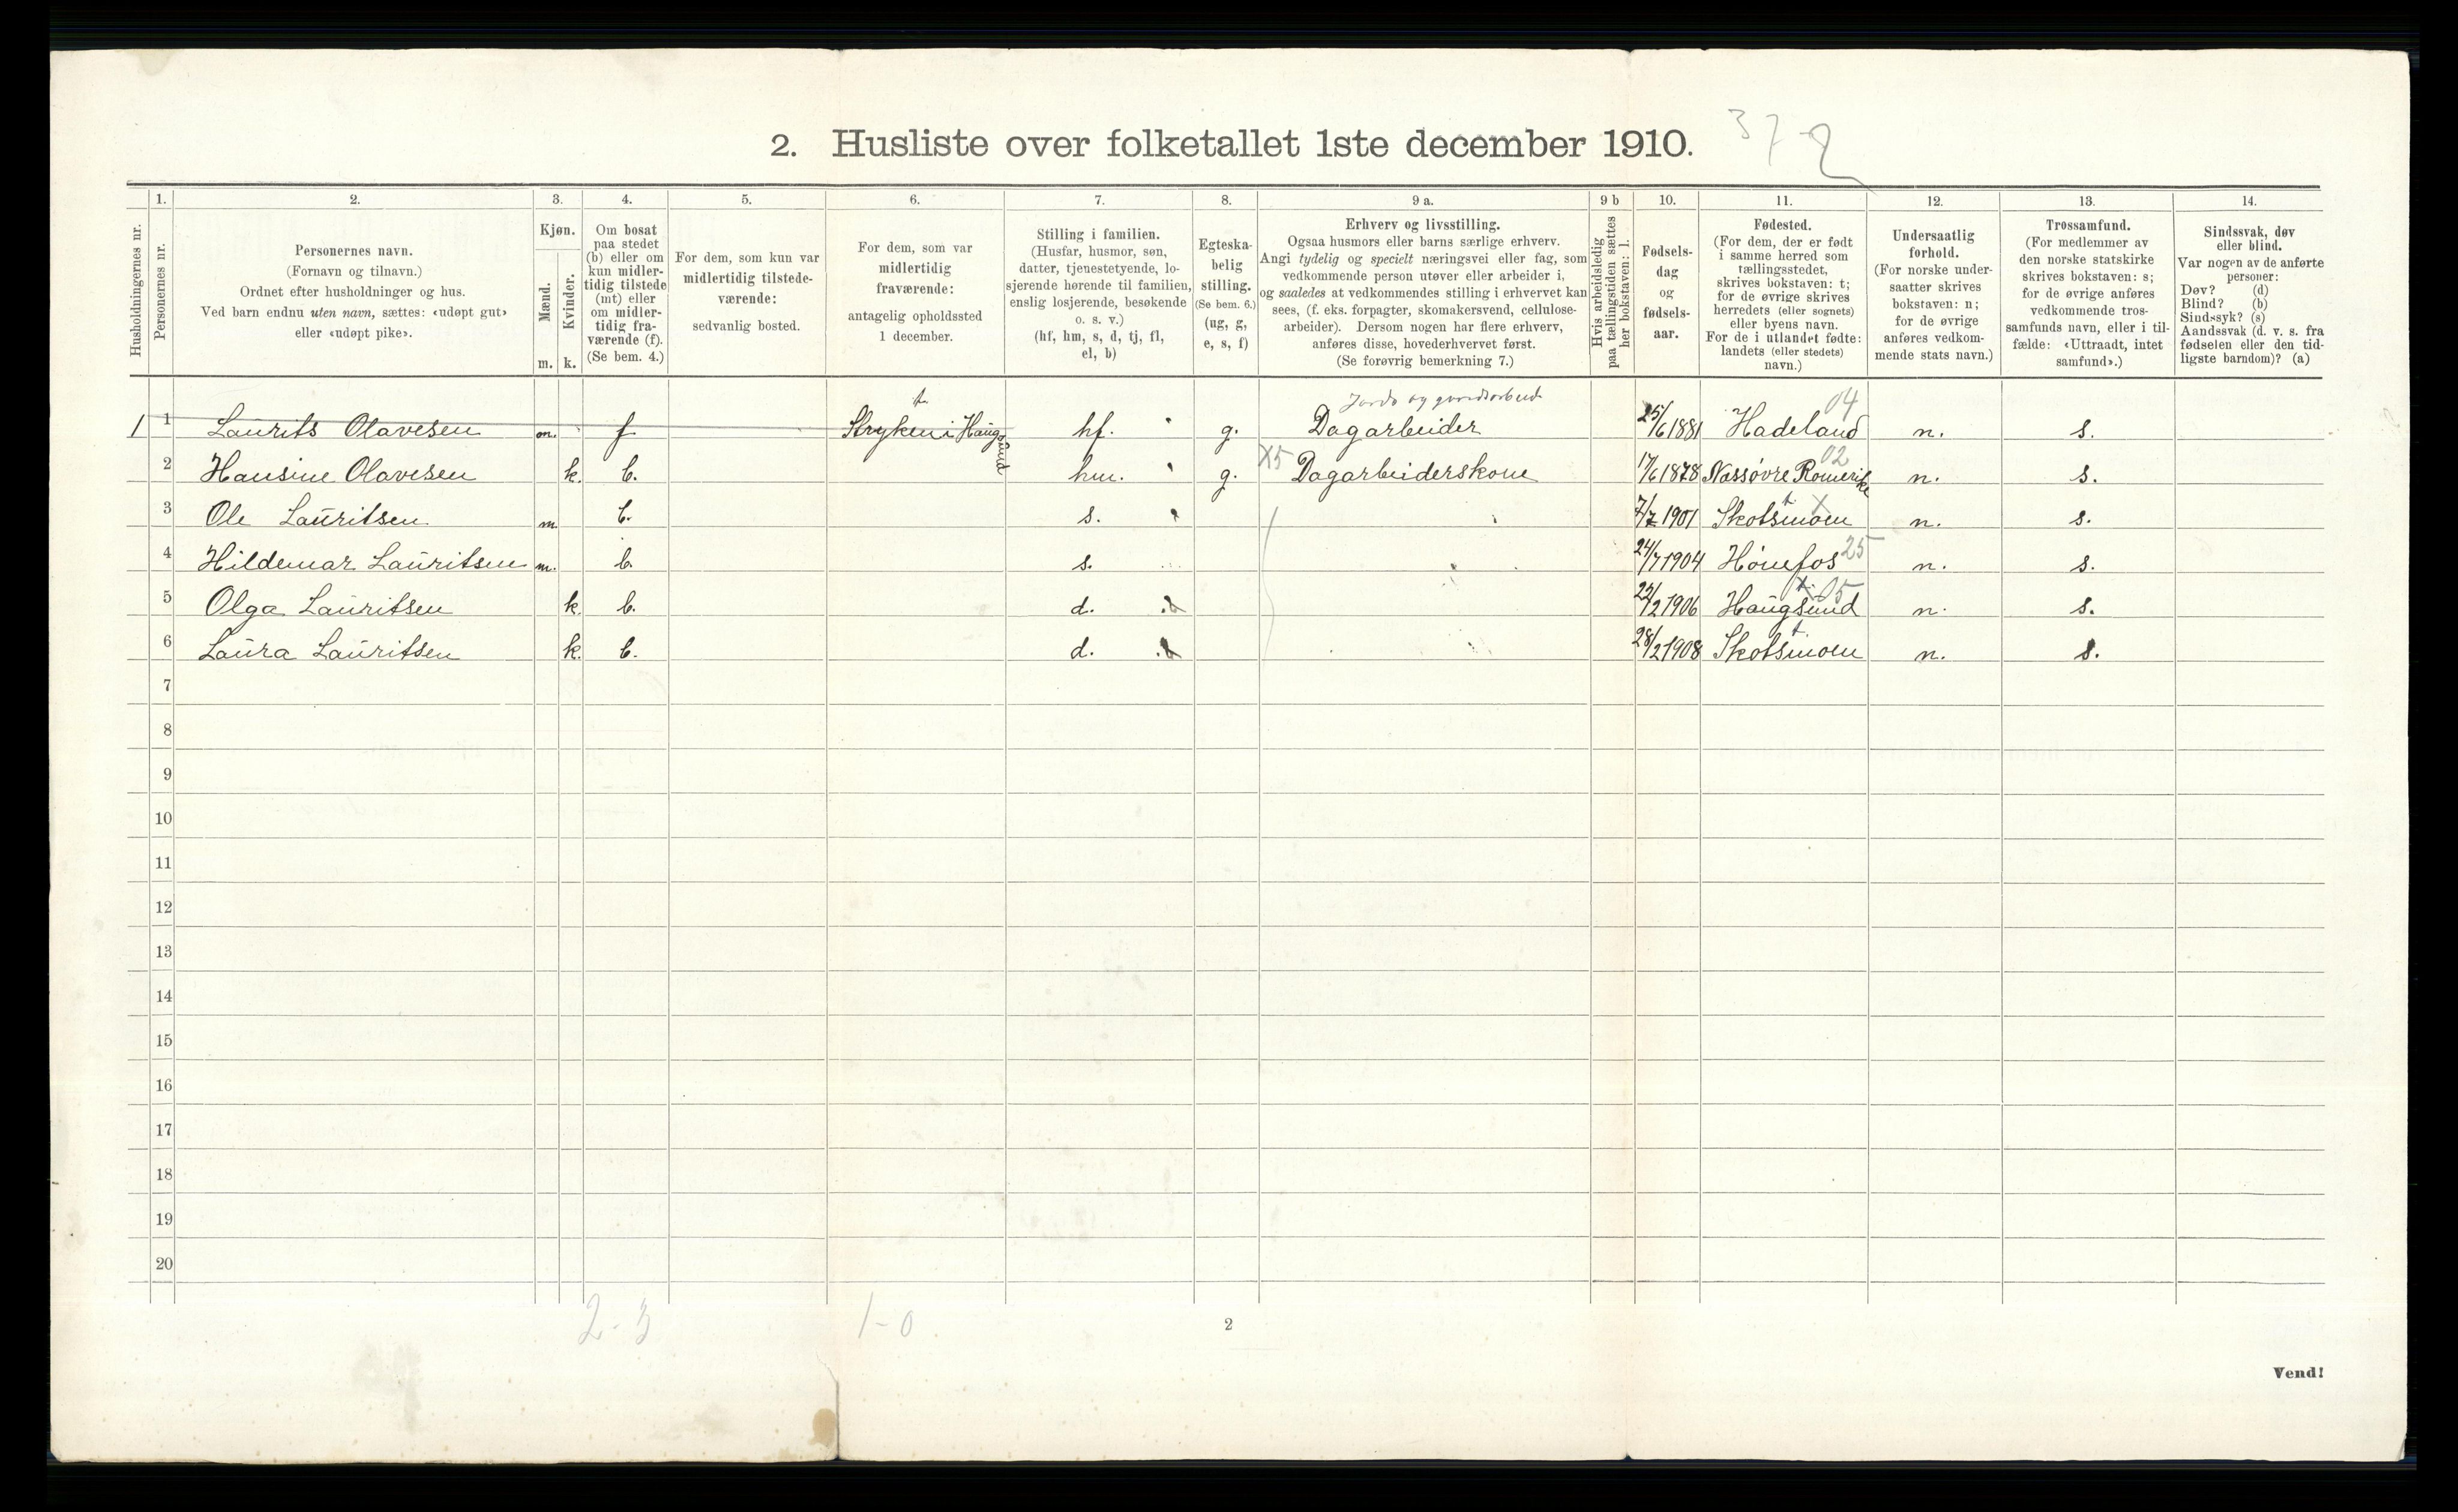 37-2
2. Husliste over folketallet 1ste december 1910.
Husholdningernes nr.
1.
Personernes nr.
2.
Personernes navn.
(Fornavn og tilnavn.)
Ordnet efter husholdninger og hus.
Ved barn endnu uten navn, sættes: «udøpt gut»
eller «udøpt pike».
3.
Kjøn.
Mænd.
m.
Kvinder.
k.
4.
Om bosat
paa stedet
(b) eller om
kun midler-
tidig tilstede
(mt) eller
om midler-
tidig fra-
værende (f).
(Se bem. 4.)
5.
For dem, som kun var
midlertidig tilstede-
værende:
sedvanlig bosted.
6.
For dem, som var
midlertidig
fraværende:
antagelig opholdssted
1 december.
7.
Stilling i familien.
(Husfar, husmor, søn,
datter, tjenestetyende, lo-
sjerende hørende til familien,
enslig losjerende, besøkende
o. s. v.)
(hf, hm, s, d, tj, fl,
el, b)
8.
Egteska-
belig
stilling.
(Se bem. 6.)
(ug, g,
e, s, f)
9 a.
Erhverv og livsstilling.
Ogsaa husmors eller barns særlige erhverv.
Angi tydelig og specielt næringsvei eller fag, som
vedkommende person utøver eller arbeider i,
og saaledes at vedkommendes stilling i erhvervet kan
sees, (f. eks. forpagter, skomakersvend, cellulose-
arbeider). Dersom nogen har flere erhverv,
anføres disse, hovederhvervet først.
(Se forøvrig bemerkning 7.)
9 b
Hvis arbeidsledig
paa tællingstiden sættes
her bokstaven: l.
10.
Fødsels-
dag
og
fødsels-
aar.
11.
Fødested.
(For dem, der er født
i samme herred som
tællingsstedet,
skrives bokstaven: t;
for de øvrige skrives
herredets (eller sognets)
eller byens navn.
For de i utlandet fødte:
landets (eller stedets)
navn.)
12.
Undersaatlig
forhold.
(For norske under-
saatter skrives
bokstaven: n;
for de øvrige
anføres vedkom-
mende stats navn.)
13.
Trossamfund.
(For medlemmer av
den norske statskirke
skrives bokstaven: s;
for de øvrige anføres
vedkommende tros-
samfunds navn, eller i til-
fælde: «Uttraadt, intet
samfund».)
14.
Sindssvak, døv
eller blind.
Var nogen av de anførte
personer:
Døv? (d)
Blind? (b)
Sindssyk? (s)
Aandssvak (d. v. s. fra
fødselen eller den tid-
ligste barndom)? (a)
t Jords og gaardsarbeid 04
1 1 Laurits Olavesen m. f Stryken i Haugsund hf. g. Dagarbeider 25/6 1881 Hadeland n. s.
X5 02
2 Hansine Olavesen k. b. hm. g. Dagarbeiderskone 17/6 1878 Næs øvre Romerike n. s.
t X
3 Ole Lauritsen m b. s. 7/7 1901 Skotsmoen n. s.
25
4 Hildemar Lauritsen m. b. s. 24/7 1904 Hønefos n. s.
X 05
5 Olga Lauritsen k. b. d. 22/2 1906 Haugsund n. s.
t
6 Laura Lauritsen k. b. d. 28/2 1908 Skotsmoen n. s.
7
8
9
10
11
12
13
14
15
16
17
18
19
20
2-3 1-0
2
Vend!